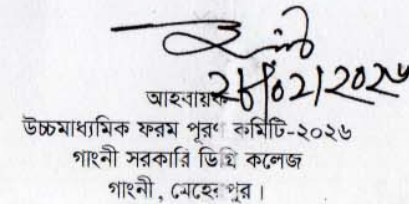 ২৮/০২/২০২৬
আহবায়ক
উচ্চমাধ্যমিক ফরম পূরণ কমিটি-২০২৬
গাংনী সরকারি ডিগ্রি কলেজ
গাংনী, মেহেরপুর।